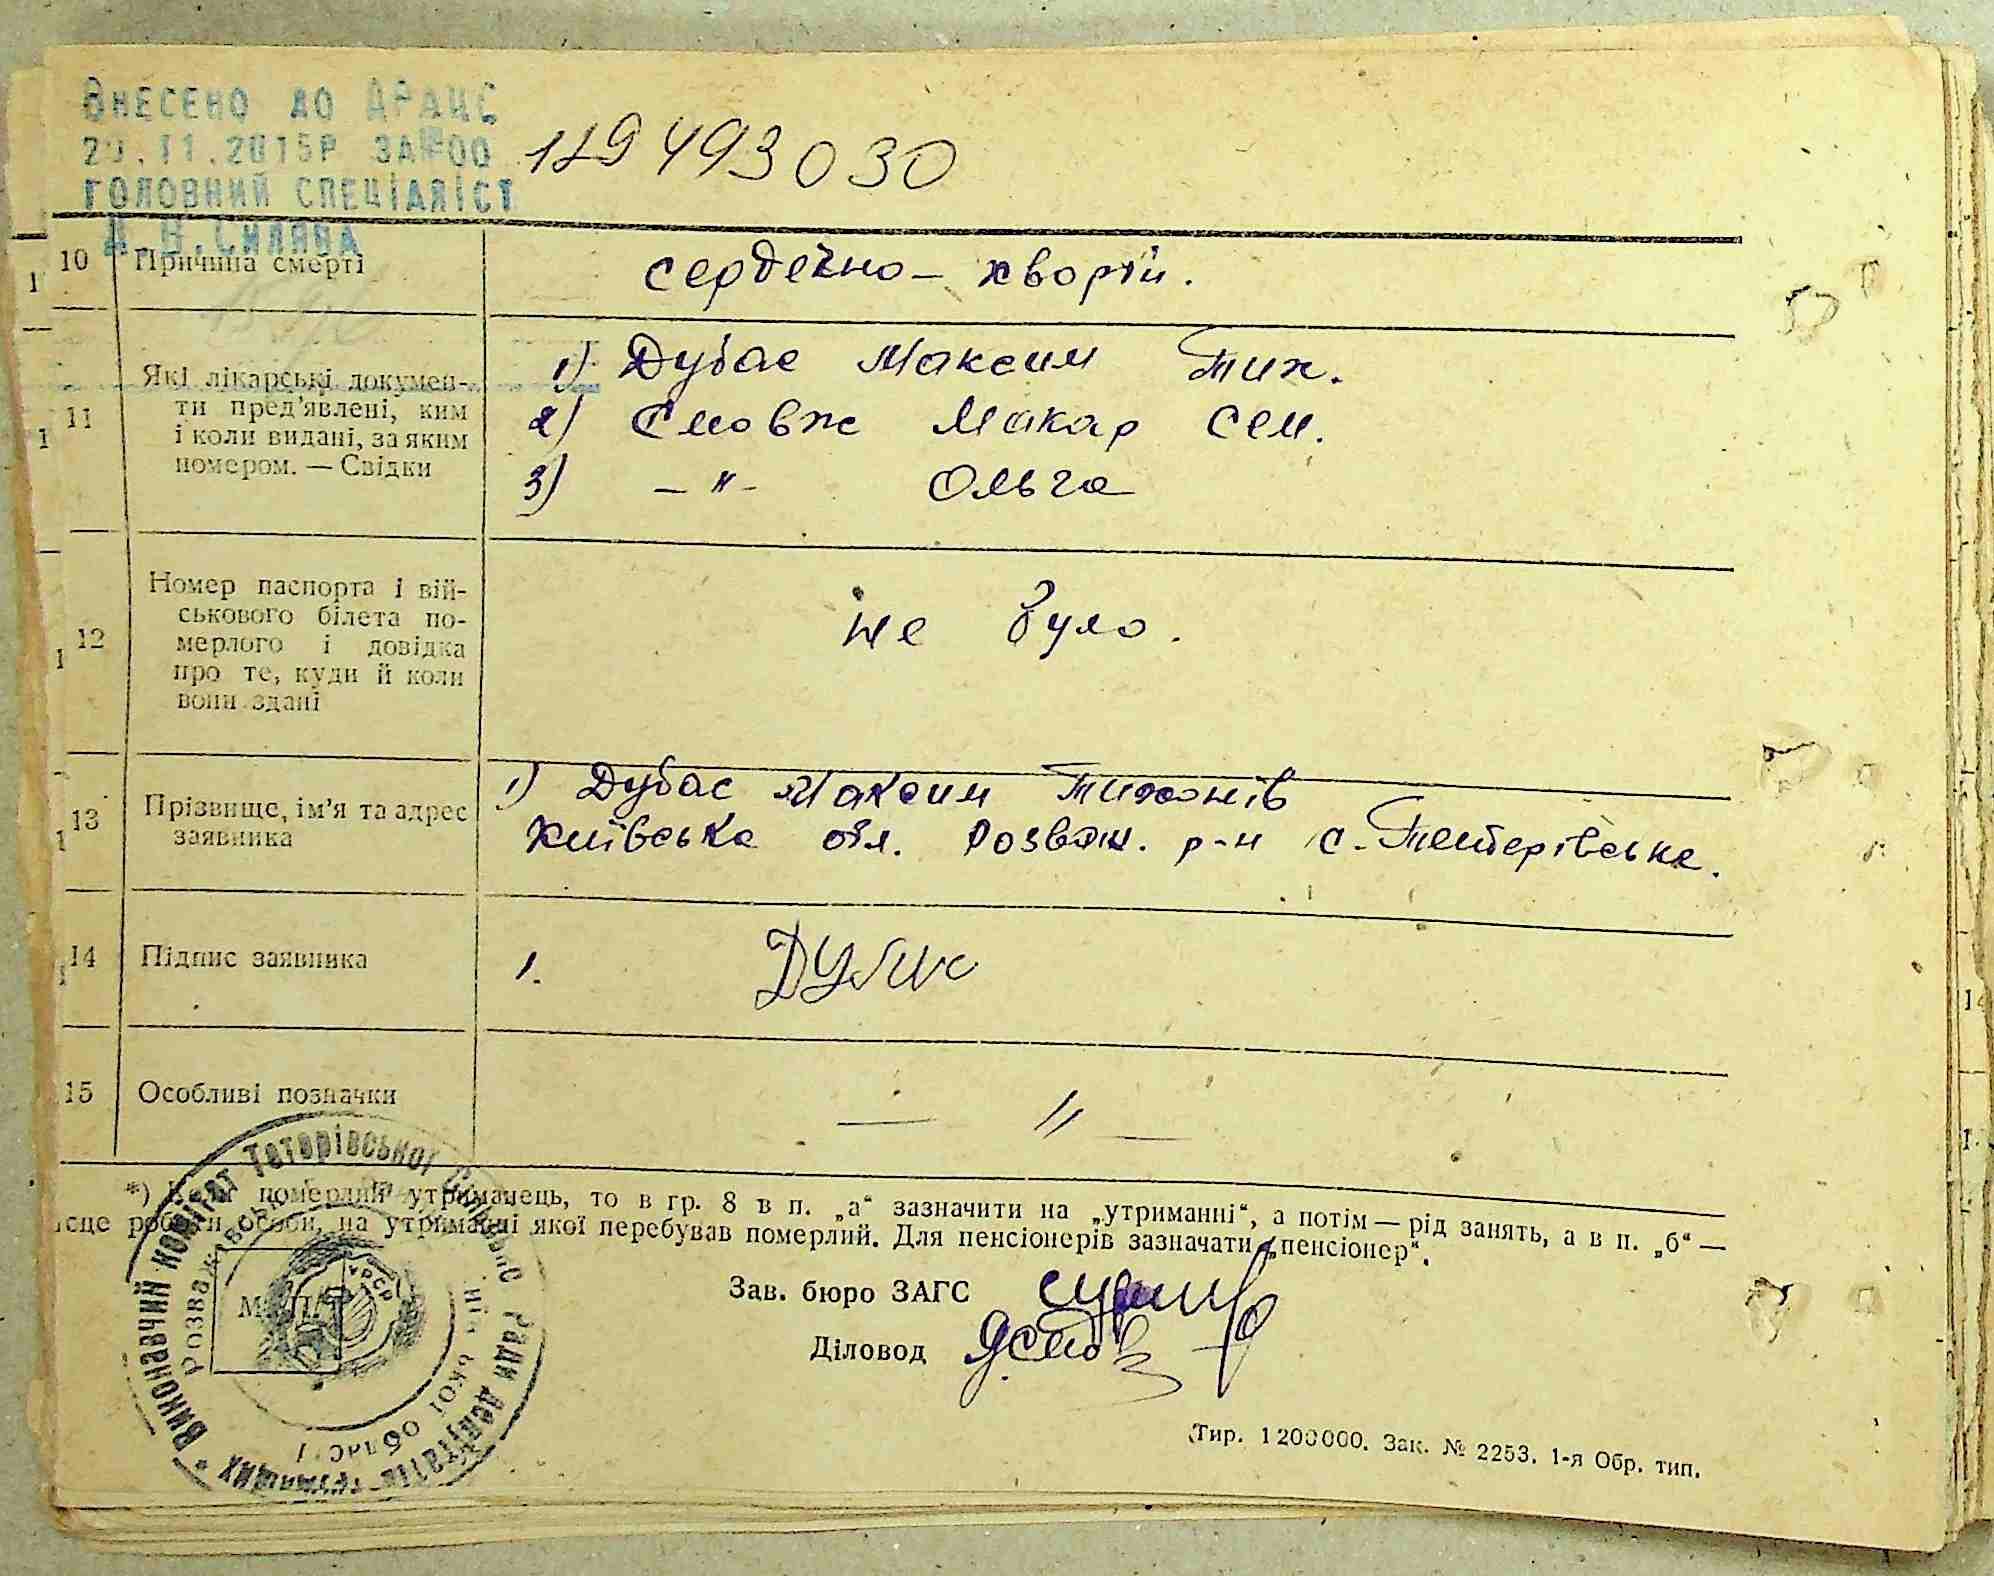 ВНЕСЕНО ДО ДРАЦС
11.2015Р ЗА № 00 129 493 030
ГОЛОВНИЙ СПЕЦІАЛІСТ
10 Причина смерті
сердечно - хворій.
11 Які лікарські докумен-
ти пред'явлені, ким
і коли видані, за яким
номером. — Свідки
1) Дубас Максим Тих.
2) Смовж Макар Сем.
3) -"- Ольга
12 Номер паспорта і вій-
ськового білета по-
мерлого і довідка
про те, куди й коли
вони здані
не було.
13 Прізвище, ім'я та адрес
заявника
1) Дубас Максим Тихонів
Київська обл. Розваж. р-н с. Тетерівське.
14 Підпис заявника
1. Дубас
15 Особливі позначки
— " —
*) Коли померлий утриманець, то в гр. 8 в п. „а“ зазначити на „утриманні“, а потім — рід занять, а в п. „б“ —
місце роботи особи, на утриманні якої перебував померлий. Для пенсіонерів зазначати „пенсіонер“.
Зав. бюро ЗАГС
Діловод
М. П.
Виконавчий комітет Тетерівської Сільської Ради депутатів трудящих
Розважівськ
області
УРСР
Тир. 1200000. Зак. № 2253. 1-я Обр. тип.